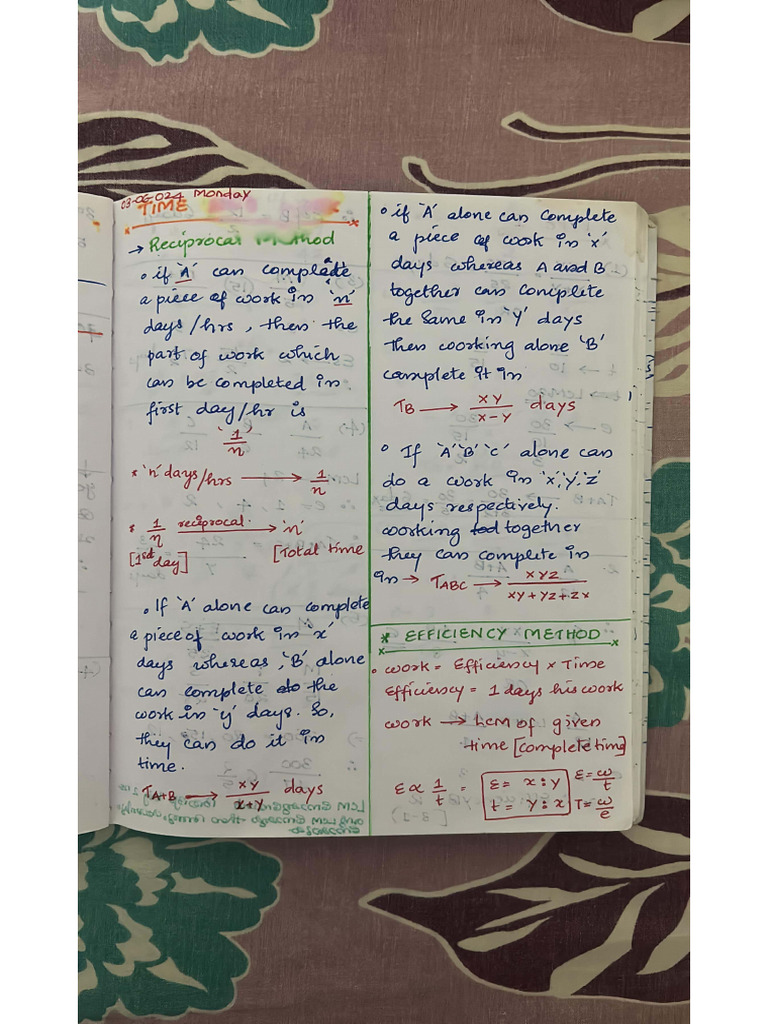 03-06-024 Monday
TIME
→ Reciprocal Method
• if 'A' can complete
a piece of work in 'n'
days/hrs, then the
part of work which
can be completed in
first day/hr is
'1/n'
* 'n' days/hrs → 1/n
* 1/n reciprocal → 'n'
[1st day] [Total time
• If 'A' alone can complete
a piece of work in 'x'
days whereas, 'B' alone
can complete the
work in 'y' days. So,
they can do it in
time.
TA+B → xy/x+y days
• if 'A' alone can complete
a piece of work in 'x'
days whereas A and B
together can complete
the same in 'Y' days
then working alone 'B'
complete it in
TB → xy/x-y days
• If 'A' 'B' 'c' alone can
do a work in 'x', 'y', 'z'
days respectively.
working together
they can complete in
in → TABC → xyz/xy+yz+zx
* EFFICIENCY METHOD
• work = Efficiency x Time
Efficiency = 1 days his work
work → LCM of given
time [complete time]
E ∝ 1/t = E = x : y E = w/t
t = y : x T = w/e